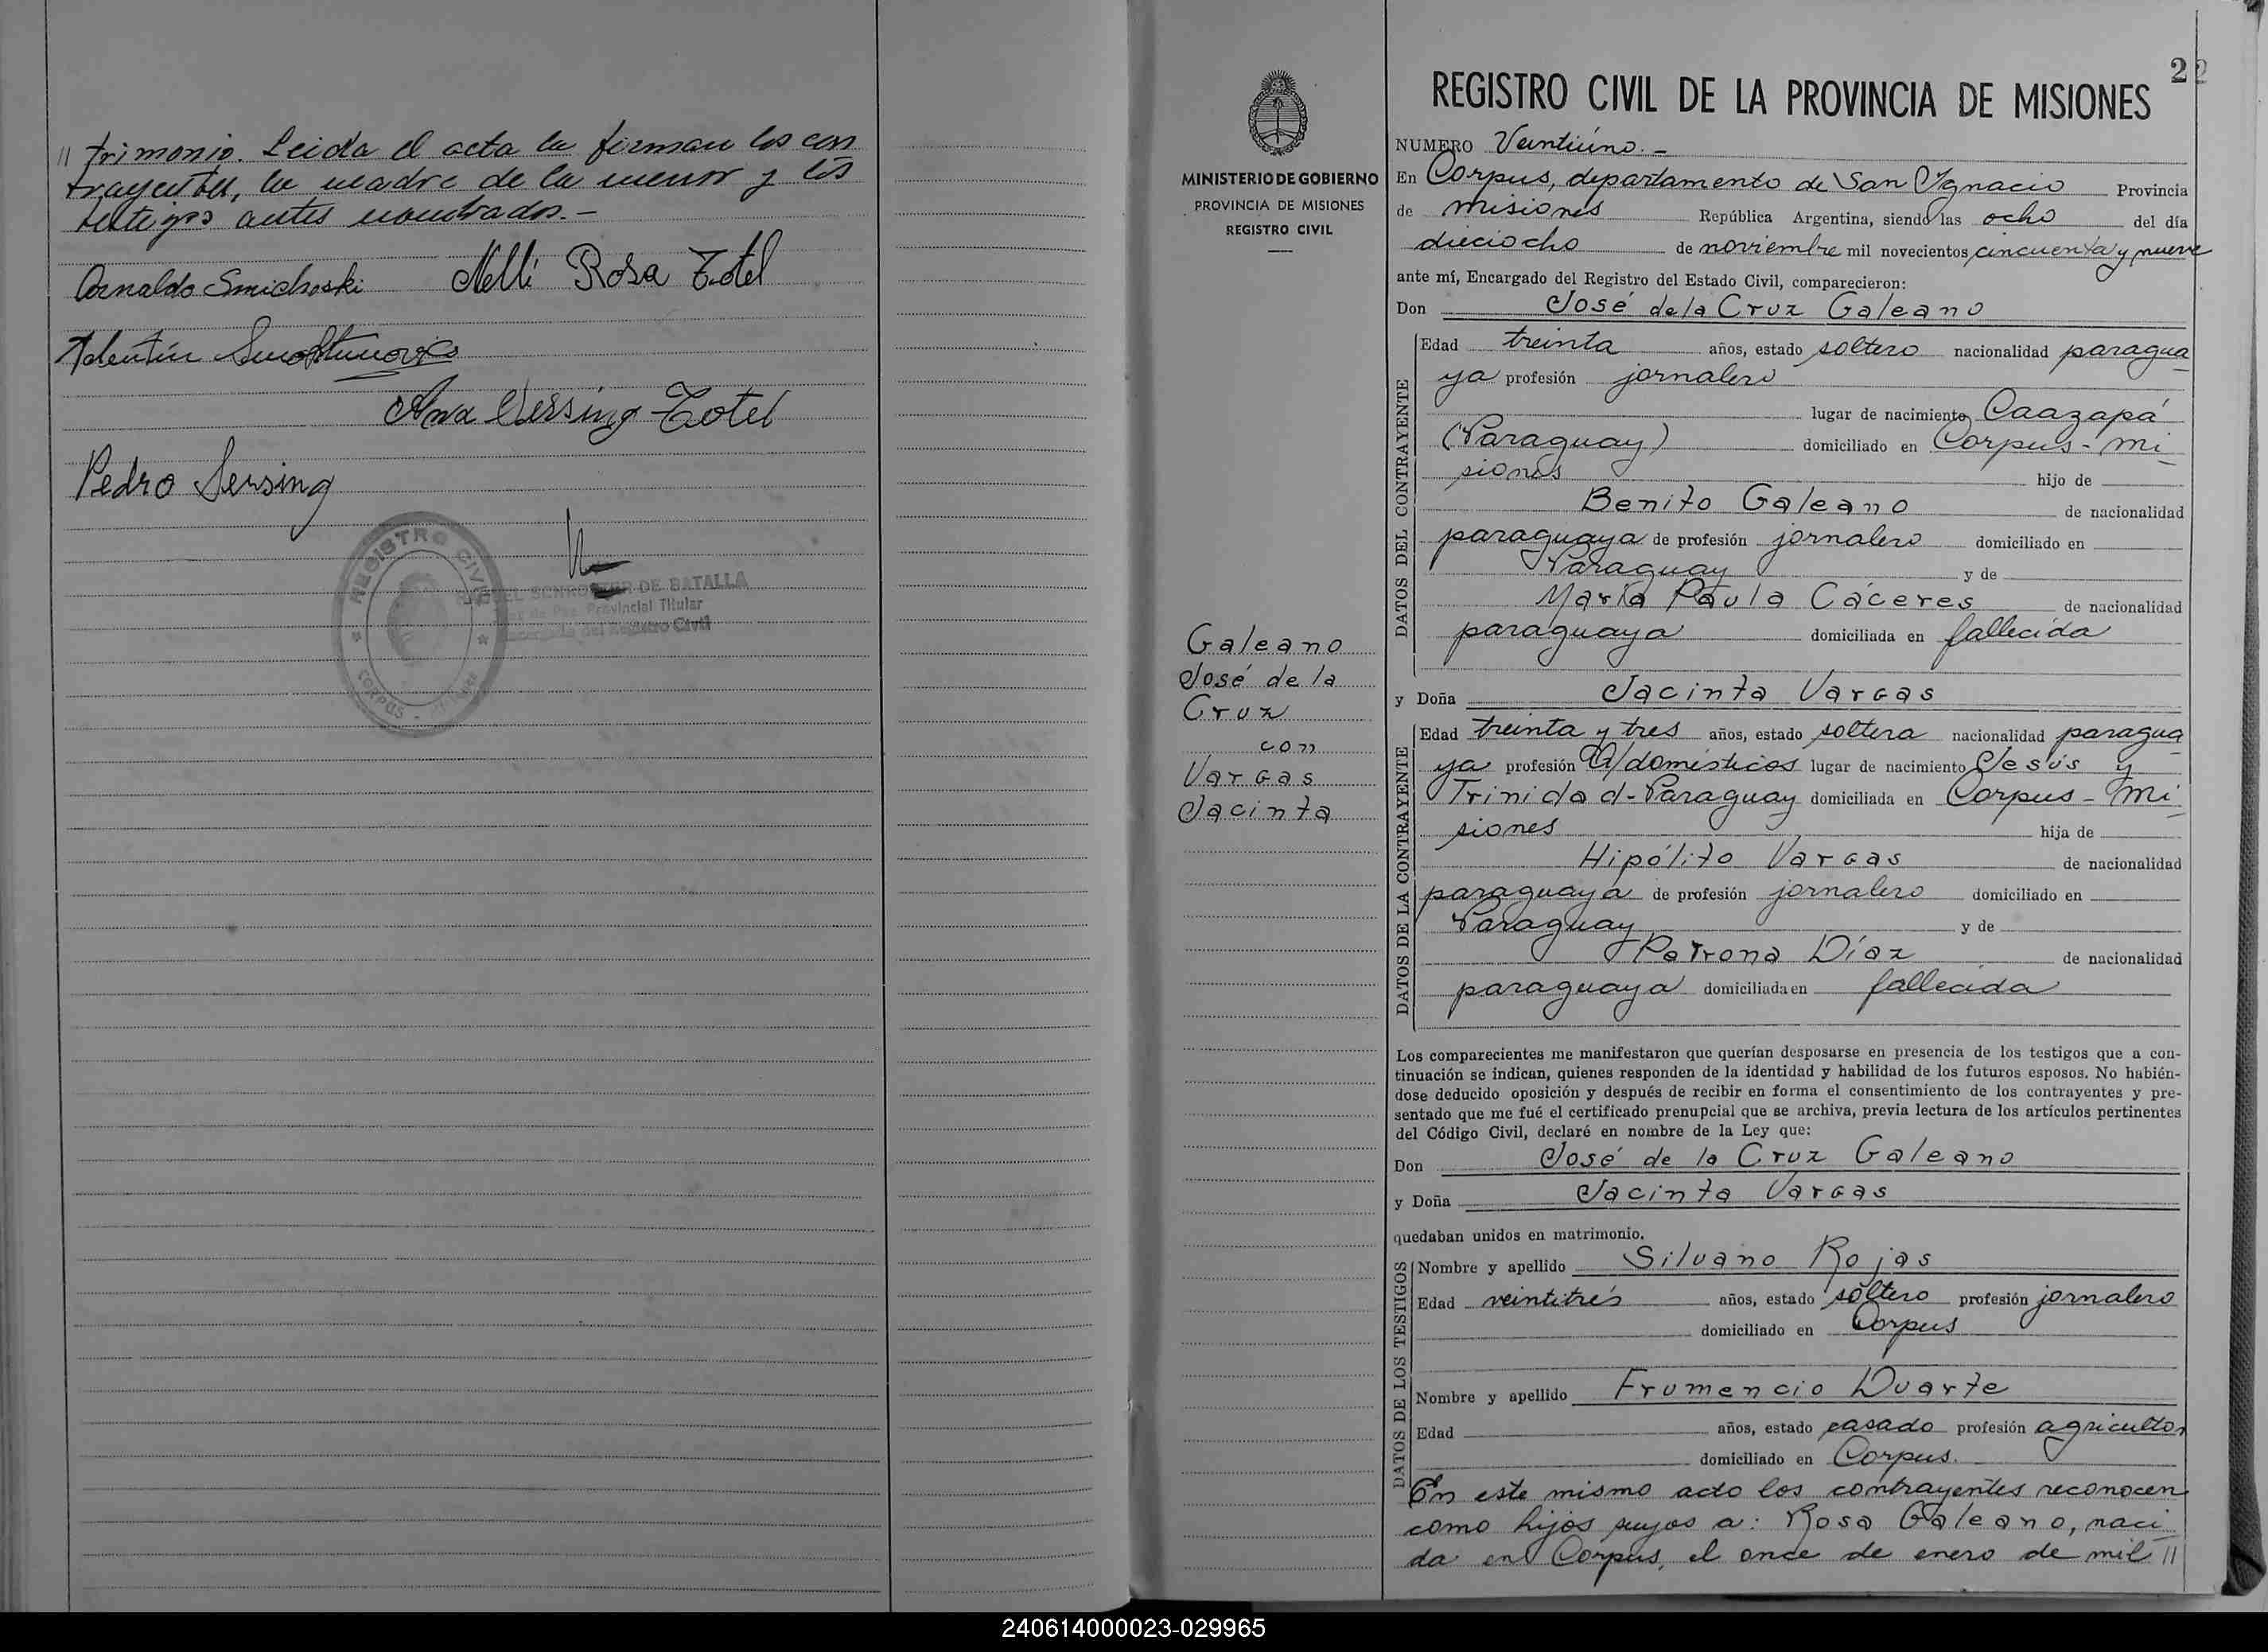 // trimonio. Leida el acta la firman los con
trayentes, la madre de la menor y los
testigos antes nombrados.-
Arnaldo Smichoski Nelli Rosa Totel
Ana Versing Totel
Pedro Sersing
REGISTRO CIVIL
CORPUS
DE BATALLA
Juez de Paz Provincial Titular
Encargado del Registro Civil
22
REGISTRO CIVIL DE LA PROVINCIA DE MISIONES
MINISTERIO DE GOBIERNO
PROVINCIA DE MISIONES
REGISTRO CIVIL
Galeano
José de la
Cruz
con
Vargas
Jacinta
NUMERO Veintiúno.-
En Corpus, departamento de San Ignacio Provincia
de misiones República Argentina, siendo las ocho del día
dieciocho de noviembre mil novecientos cincuenta y nueve
ante mí, Encargado del Registro del Estado Civil, comparecieron:
Don José de la Cruz Galeano
DATOS DEL CONTRAYENTE
Edad treinta años, estado soltero nacionalidad paragua
ya profesión jornalero
lugar de nacimiento Caazapá
(Paraguay) domiciliado en Corpus - mi
siones hijo de
Benito Galeano de nacionalidad
paraguaya de profesión jornalero domiciliado en
Paraguay y de
María Paula Cáceres de nacionalidad
paraguaya domiciliada en fallecida
y Doña Jacinta Vargas
DATOS DE LA CONTRAYENTE
Edad treinta y tres años, estado soltera nacionalidad paragua
ya profesión Q/domésticos lugar de nacimiento Jesús y
Trinidad - Paraguay domiciliada en Corpus - Mi
siones hija de
Hipólito Vargas de nacionalidad
paraguaya de profesión jornalero domiciliado en
Paraguay y de
Petrona Díaz de nacionalidad
paraguaya domiciliada en fallecida
Los comparecientes me manifestaron que querían desposarse en presencia de los testigos que a con-
tinuación se indican, quienes responden de la identidad y habilidad de los futuros esposos. No habién-
dose deducido oposición y después de recibir en forma el consentimiento de los contrayentes y pre-
sentado que me fué el certificado prenupcial que se archiva, previa lectura de los artículos pertinentes
del Código Civil, declaré en nombre de la Ley que:
Don José de la Cruz Galeano
y Doña Jacinta Vargas
quedaban unidos en matrimonio.
DATOS DE LOS TESTIGOS
Nombre y apellido Silvano Rojas
Edad veintitrés años, estado soltero profesión jornalero
domiciliado en Corpus
Nombre y apellido Frumencio Duarte
Edad años, estado casado profesión agricultor
domiciliado en Corpus.
En este mismo acto los contrayentes reconocen
como hijos suyos a: Rosa Galeano, naci
da en Corpus, el once de enero de mil //
240614000023-029965